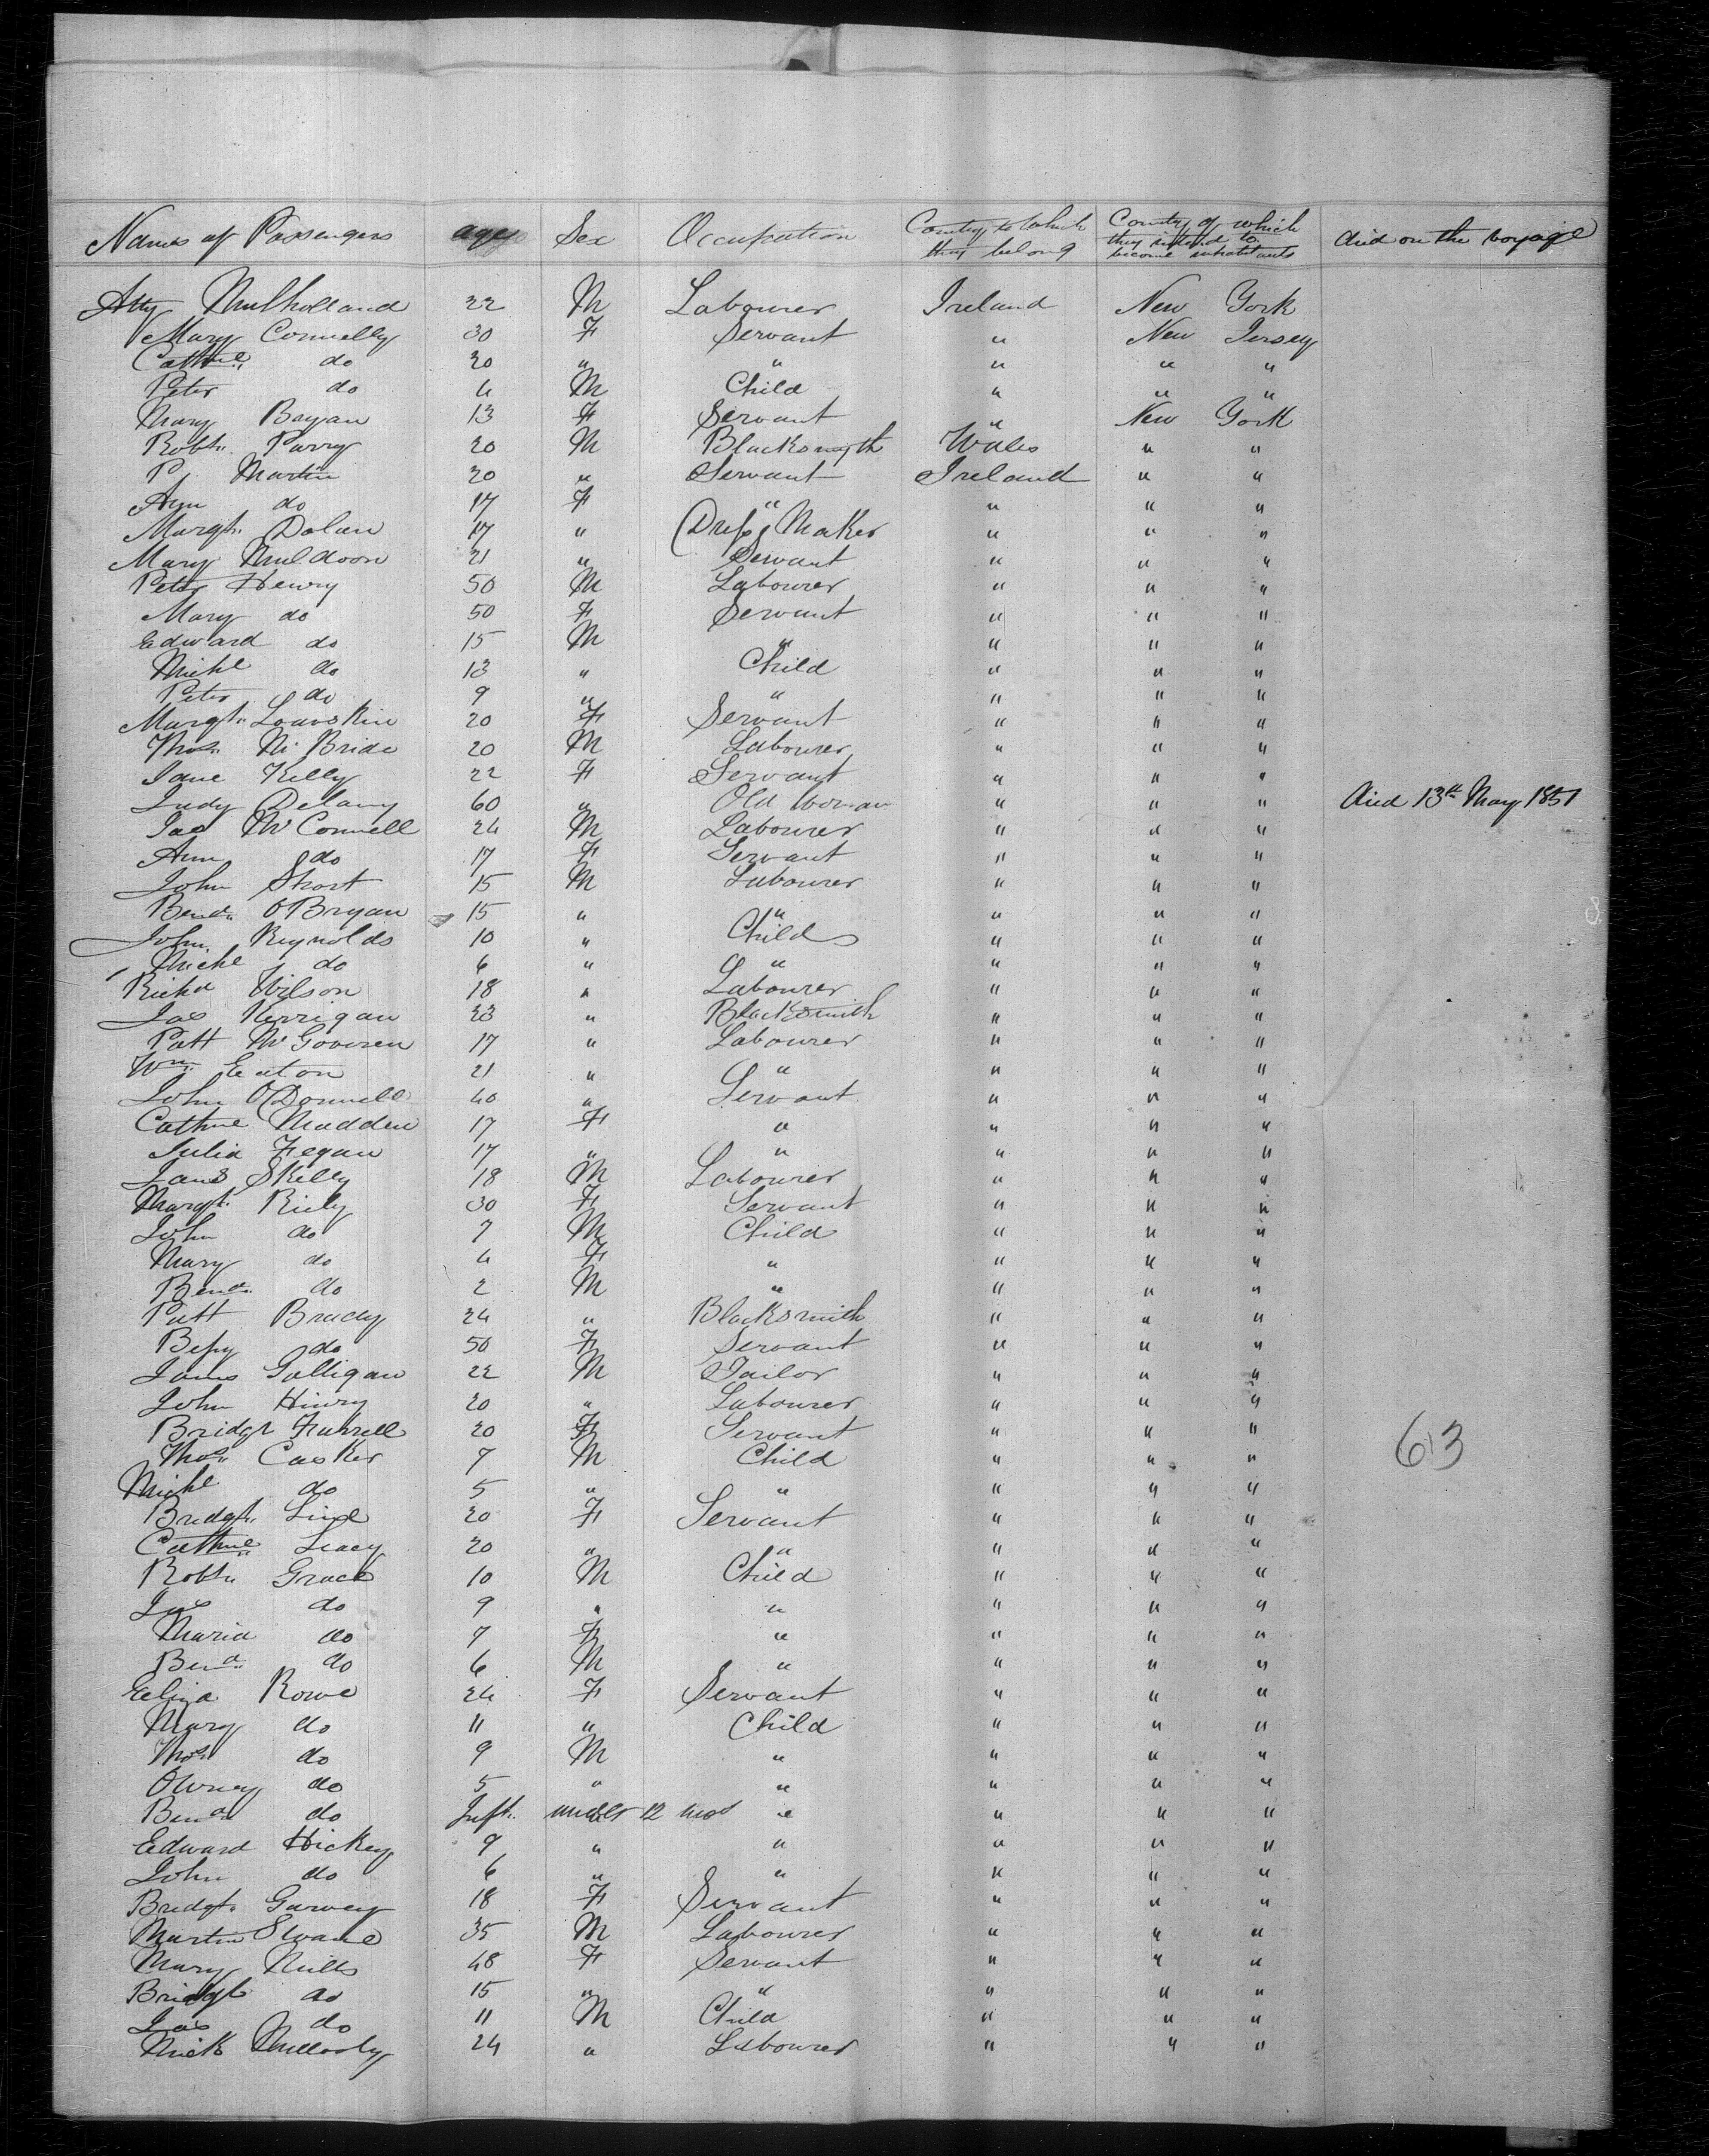 Names of Passengers ages Sex Occupation Country to which they belong Country of which they intend to become inhabitants died on the voyage
Atty Mulholland 22 M Labourer Ireland New York
Mary Connelly 30 F Servant " New Jersey
Cathne do 20 " " " " "
Peter do 4 M Child " " "
Mary Bryan 13 F Servant " New York
Robt. Parry 20 M Blacksmyth Wales " "
P. Martin 20 " Servant Ireland " "
Ann do 17 F " " " "
Margt. Dolan 17 " Dress Maker " " "
Mary Muldoon 21 " Servant " " "
Peter Henry 50 M Labourer " " "
Mary do 50 F Servant " " "
Edward do 15 M " " " "
Michl do 13 " Child " " "
Peter do 9 " " " " "
Margt. 20 F Servant " " "
Thos. Mc Bride 20 M Labourer " " "
Jane Kelly 22 F Servant " " "
Judy Delany 60 " Old Woman " " " died 13th May 1851
Jas McConnell 24 M Labourer " " "
Ann do 17 F Servant " " "
John Short 15 M Labourer " " "
Bernd. O'Bryan 15 " " " " "
John Reynolds 10 " Child " " "
Michl do 6 " " " " "
Richd Wilson 18 " Labourer " " "
Jas Kerrigan 23 " Blacksmith " " "
Patt McGoveren 17 " Labourer " " "
Wm. Eaton 21 " " " " "
John O'Donnell 40 " Servant " " "
Cathne Madden 17 F " " " "
Julia Fegan 17 " " " " "
James Skelly 18 M Labourer " " "
Margt. Riely 30 F Servant " " "
John do 7 M Child " " "
Mary do 4 F " " " "
Bernd. do 2 M " " " "
Patt Brady 24 " Blacksmith " " "
Bessy do 50 F Servant " " "
James Galligan 22 M Tailor " " "
John Hinry 20 " Labourer " " "
Bridgt Farrell 20 F Servant " " "
Thos. Casker 7 M Child " " " 613
Michl do 5 " " " " "
Bridgt. 20 F Servant " " "
Cathne Leacy 20 " " " " "
Robt. Grace 10 M Child " " "
Jas do 9 " " " " "
Maria do 7 F " " " "
Bernd. do 6 M " " " "
Eliza Rowe 24 F Servant " " "
Mary do 11 " Child " " "
Thos. do 9 M " " " "
Owney do 5 " " " " "
Bernd. do Inft. under 12 mos " " " "
Edward Hickey 9 " " " " "
John do 6 " " " " "
Bridgt. Garvey 18 F Servant " " "
Martin Slwane 35 M Labourer " " "
Mary Mills 48 F Servant " " "
Bridgt do 15 " " " " "
Jas do 11 M Child " " "
Mick 24 " Labourer " " "